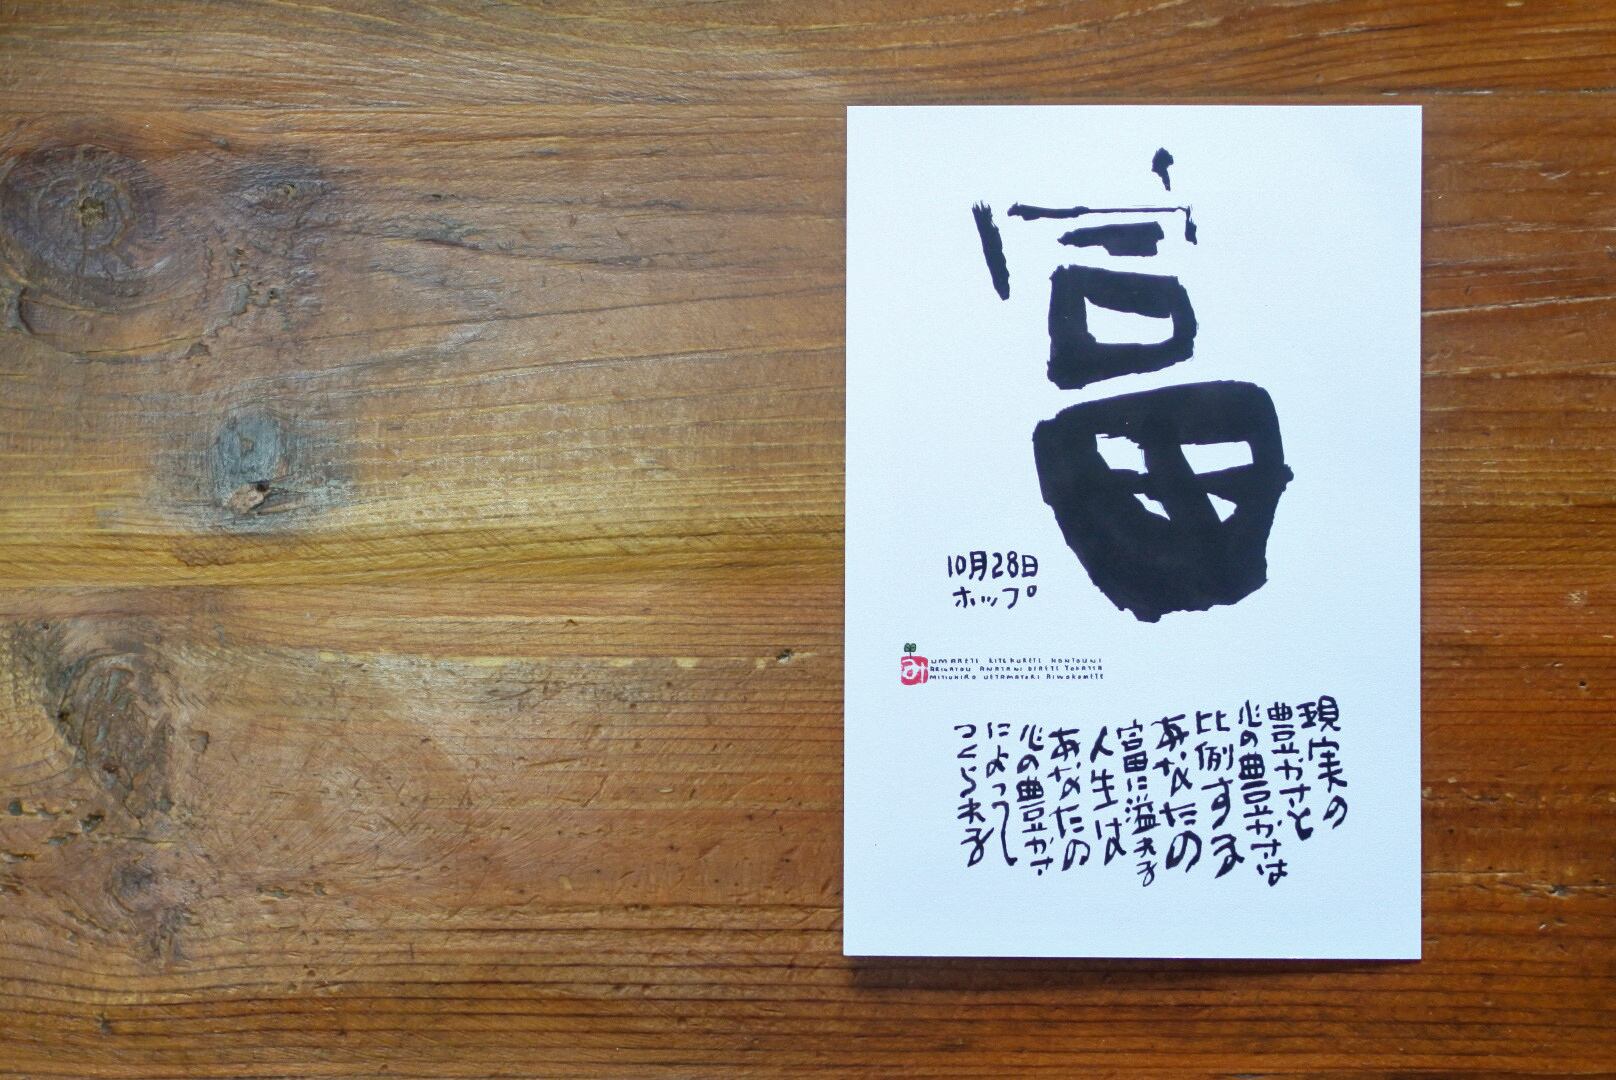 富
10月28日
ホップ
み
UMARETE KITEKURETE HONTOUNI
ARIGATOU ANATANI DEAETE YOKATTA
MITIUHIRO UETAMAYORI AIWOKOMETE
現実の
豊かさと
心の豊かさは
比例する
あなたの
富に溢れる
人生は
あなたの
心の豊かさ
によって
つくられる